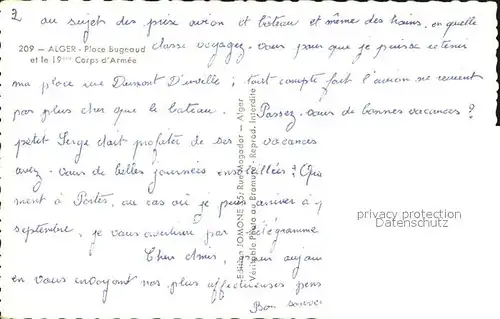 2 au sujet des prix avion et bateau et même des trains, en quelle
209 — ALGER - Place Bugeaud
et le 19ème Corps d'Armée
classe voyagez-vous pour que je puisse retenir
ma place rue Dumont D'urville; tout compte fait l'avion ne revient
pas plus cher que le bateau. Passez-vous de bonnes vacances?
petit Serge doit profiter de ses vacances
avez-vous de belles journées ensoleillées?
ment à Postes, au cas où je puis arriver à
septembre, je vous avertirai par télégramme
Chers Amis,
en vous envoyant nos plus affectueuses pens
Bon
Edition JOMONE - 45, Rue Mogador - Alger
Véritable Photo au Bromure - Reprod. Interdite
privacy protection
Datenschutz